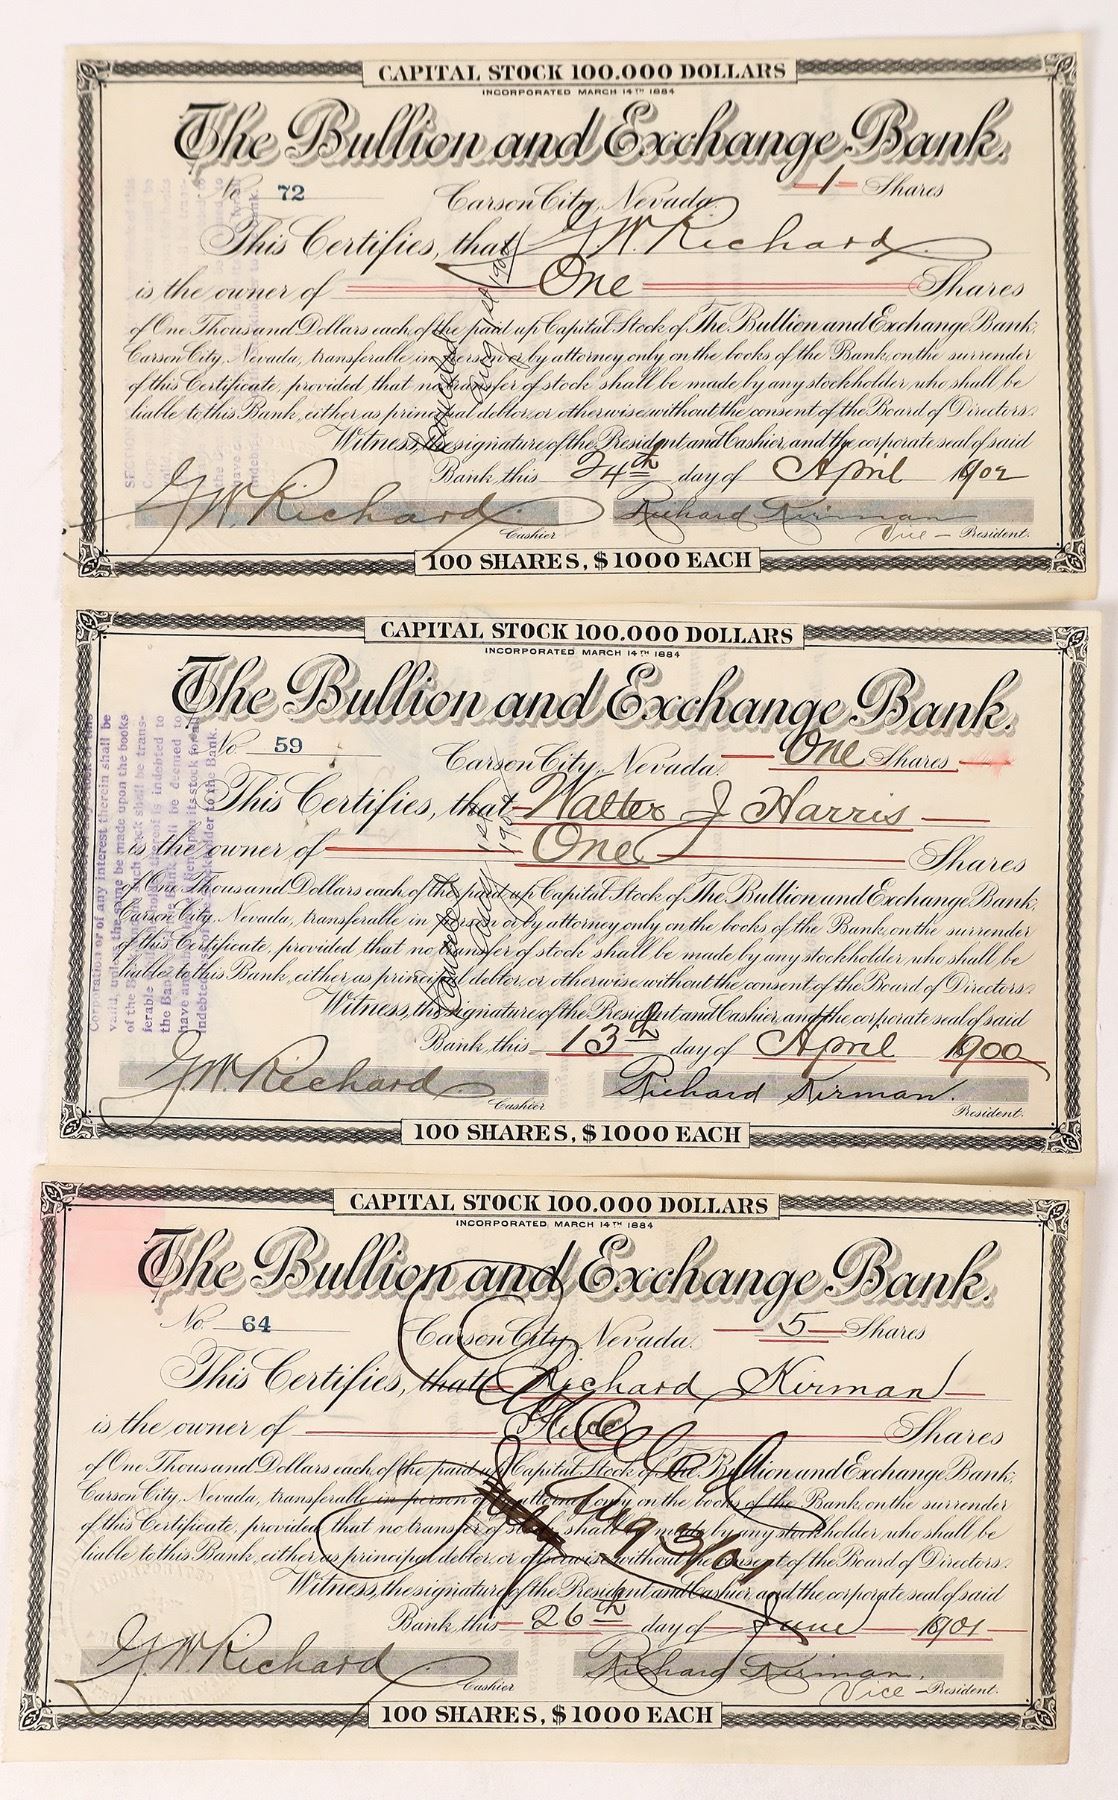 CAPITAL STOCK 100.000 DOLLARS
INCORPORATED MARCH 14TH 1884
The Bullion and Exchange Bank.
No 72 Carson City, Nevada. 1 Shares
This Certifies, that G.W. Richard
is the owner of One Shares
of One Thousand Dollars each, of the paid up Capital Stock of The Bullion and Exchange Bank,
Carson City, Nevada, transferable in person or by attorney only on the books of the Bank, on the surrender
of this Certificate, provided that no transfer of stock shall be made by any stockholder who shall be
liable to this Bank, either as principal debtor, or otherwise, without the consent of the Board of Directors.
Witness, the signature of the President and Cashier, and the corporate seal of said
Bank this 24th day of April 1902
G.W. Richard Richard Kirman
Cashier Vice - President.
100 SHARES, $1000 EACH
CAPITAL STOCK 100.000 DOLLARS
INCORPORATED MARCH 14TH 1884
The Bullion and Exchange Bank.
No 59 Carson City, Nevada. One Shares
This Certifies, that Walter J Harris
is the owner of One Shares
of One Thousand Dollars each, of the paid up Capital Stock of The Bullion and Exchange Bank,
Carson City, Nevada, transferable in person or by attorney only on the books of the Bank, on the surrender
of this Certificate, provided that no transfer of stock shall be made by any stockholder who shall be
liable to this Bank, either as principal debtor, or otherwise, without the consent of the Board of Directors.
Witness, the signature of the President and Cashier, and the corporate seal of said
Bank this 13th day of April 1900
G.W. Richard Richard Kirman.
Cashier President.
100 SHARES, $1000 EACH
Corporation or of any interest therein shall be
valid, unless the same be made upon the books
CAPITAL STOCK 100.000 DOLLARS
INCORPORATED MARCH 14TH 1884
The Bullion and Exchange Bank.
No 64 Carson City, Nevada. 5 Shares
This Certifies, that Richard Kirman
is the owner of Five Shares
of One Thousand Dollars each, of the paid up Capital Stock of The Bullion and Exchange Bank,
Carson City, Nevada, transferable in person or by attorney only on the books of the Bank, on the surrender
of this Certificate, provided that no transfer of stock shall be made by any stockholder who shall be
liable to this Bank, either as principal debtor, or otherwise without the consent of the Board of Directors.
Witness, the signature of the President and Cashier, and the corporate seal of said
Bank this 26th day of June 1901
G.W. Richard Richard Kirman.
Cashier Vice - President.
100 SHARES, $1000 EACH